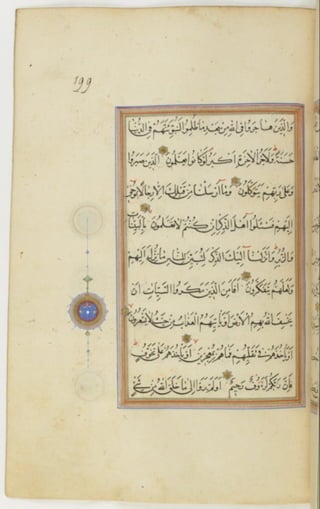 199
والذين هاجروا في الله من بعد ما ظلموا لنبوئنهم في الدنيا
حسنة ولأجر الآخرة أكبر لو كانوا يعلمون الذين صبروا
وعلى ربهم يتوكلون وما أرسلنا من قبلك إلا رجالا نوحي
إليهم فسئلوا أهل الذكر إن كنتم لا تعلمون بالبينات
والزبر وأنزلنا إليك الذكر لتبين للناس ما نزل إليهم
ولعلهم يتفكرون أفأمن الذين مكروا السيئات أن
يخسف الله بهم الأرض أو يأتيهم العذاب من حيث لا يشعرون
أو يأخذهم في تقلبهم فما هم بمعجزين أو يأخذهم على تخوف
فإن ربكم لرؤف رحيم أولم يروا إلى ما خلق الله من شيء